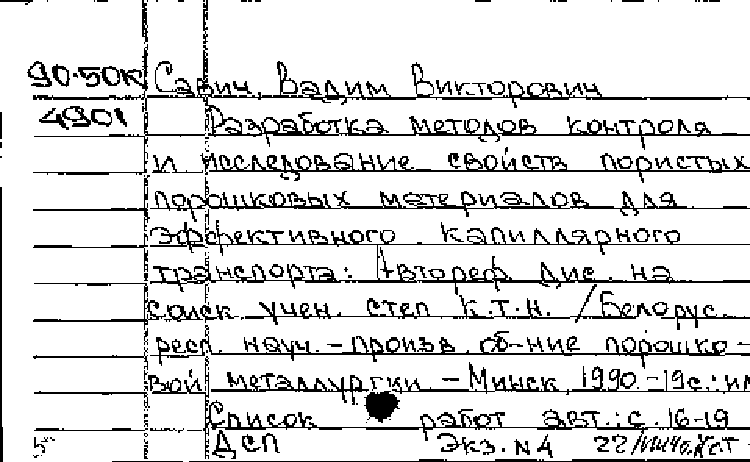 90-50к Савич, Вадим Викторович
4901 Разработка методов контроля
и исследование свойств пористых
порошковых материалов для
эффективного капиллярного
транспорта: Автореф. дис. на
соиск учен. степ к.т.н. / Белорус.
респ. науч.-произв. об-ние порошко-
вой металлургии. - Минск, 1990.-19с.: ил
Список работ авт.: с. 16-19
ДСП Экз. N4